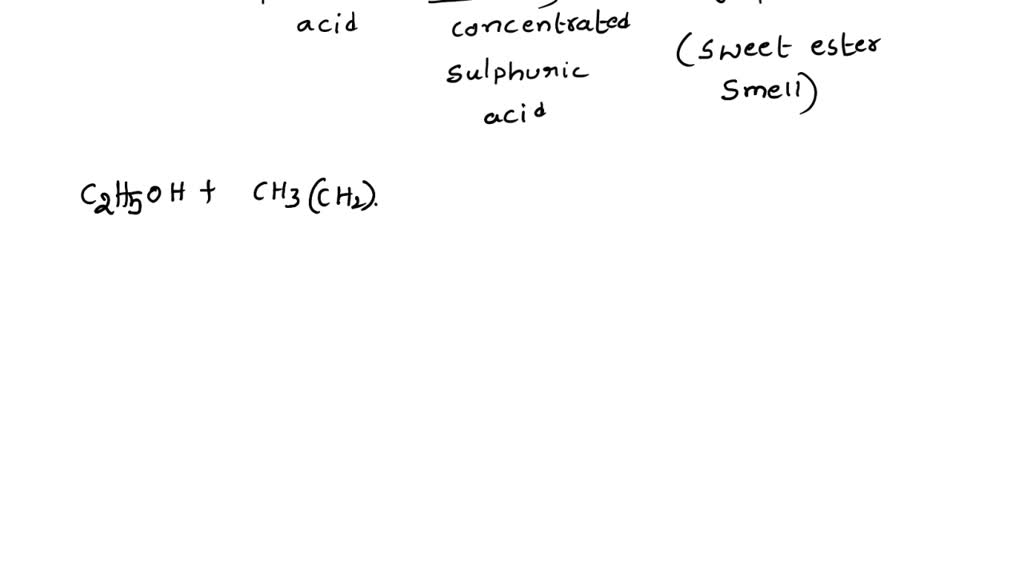 acid concentrated (sweet ester
sulphuric smell)
acid
C2H5OH + CH3(CH2).